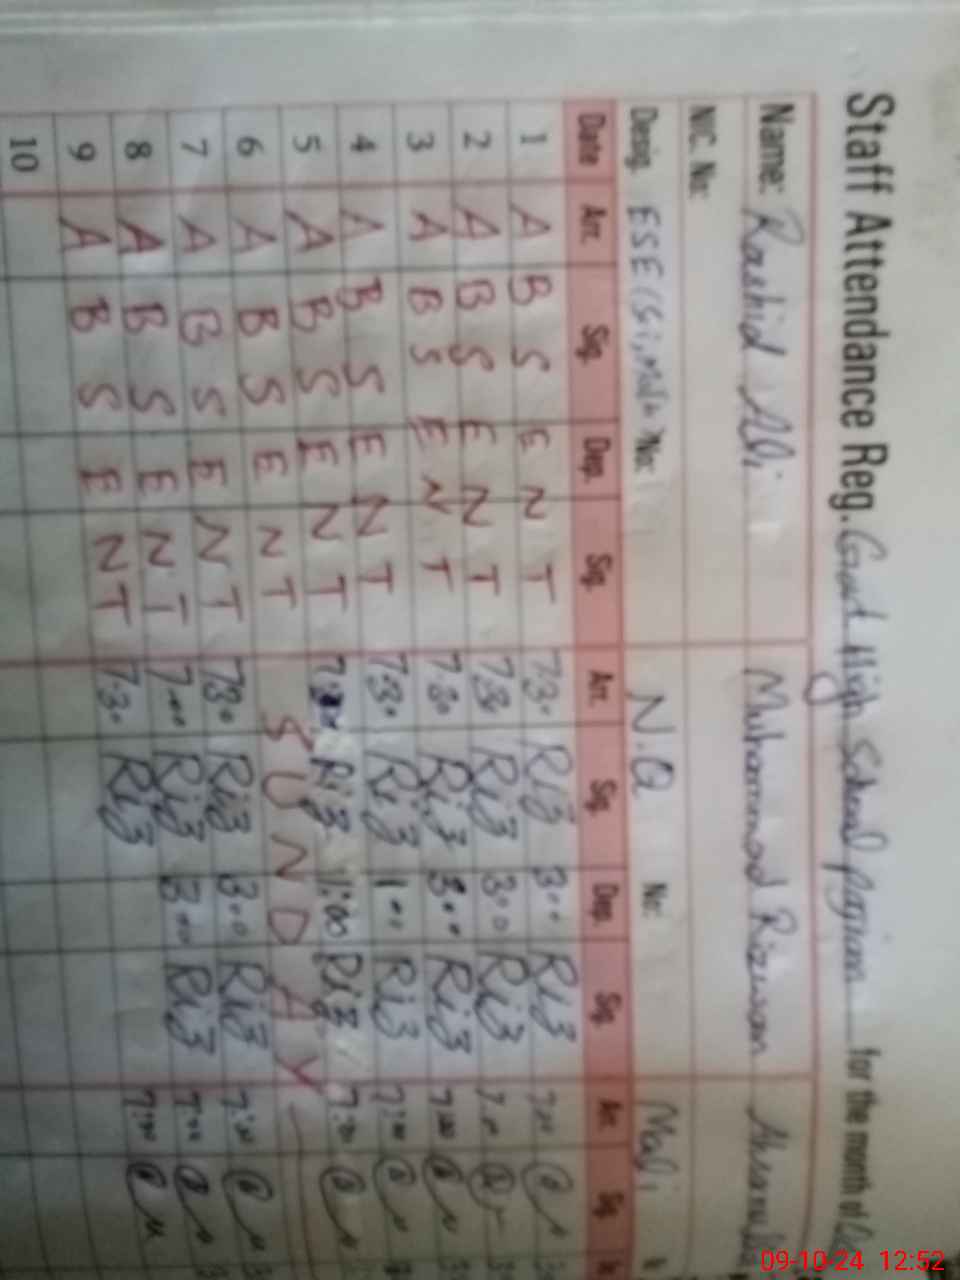 Staff Attendance Reg. Govt High School for the month of
Name: Rashid Ali Muhammad Rizwan
NIC. No:
Desig. ESE (Sci, Math No: N.Q No: Mali
Date Arr. Sig. Dep. Sig. Arr. Sig. Dep. Sig. Arr. Sig.
1 A B S E N T 7:30 Riz 3:00 Riz
2 A B S E N T 7:30 Riz 3:00 Riz
3 A B S E N T 7:30 Riz 3:00 Riz
4 A B S E N T 7:30 Riz 1:00 Riz
5 A B S E N T Riz 1:00 Riz
6 A B S E N T S U N D A Y
7 A B S E N T 7:30 Riz 3:00 Riz
8 A B S E N T 7:00 Riz 3:00 Riz
9 A B S E N T 7:30 Riz
10
09-10-24 12:52